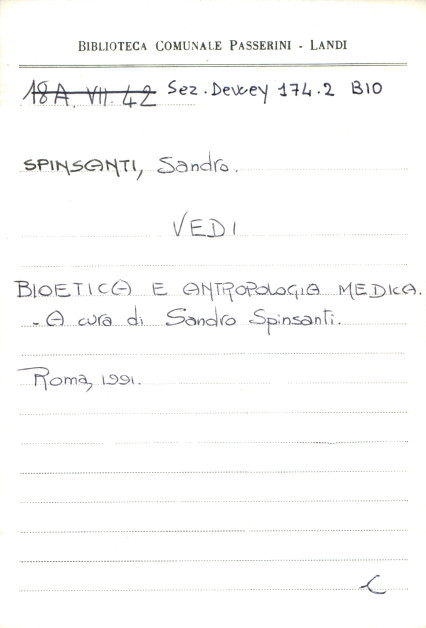 BIBLIOTECA COMUNALE PASSERINI - LANDI
18A. VII. 42 Sez. Dewey 174.2 BIO
SPINSANTI, Sandro.
VEDI
BIOETICA E ANTROPOLOGIA MEDICA.
- A cura di Sandro Spinsanti.
Roma, 1991.